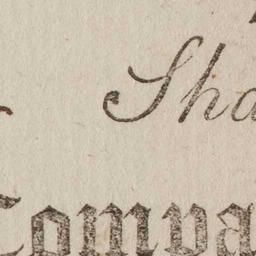 Sha
Compa